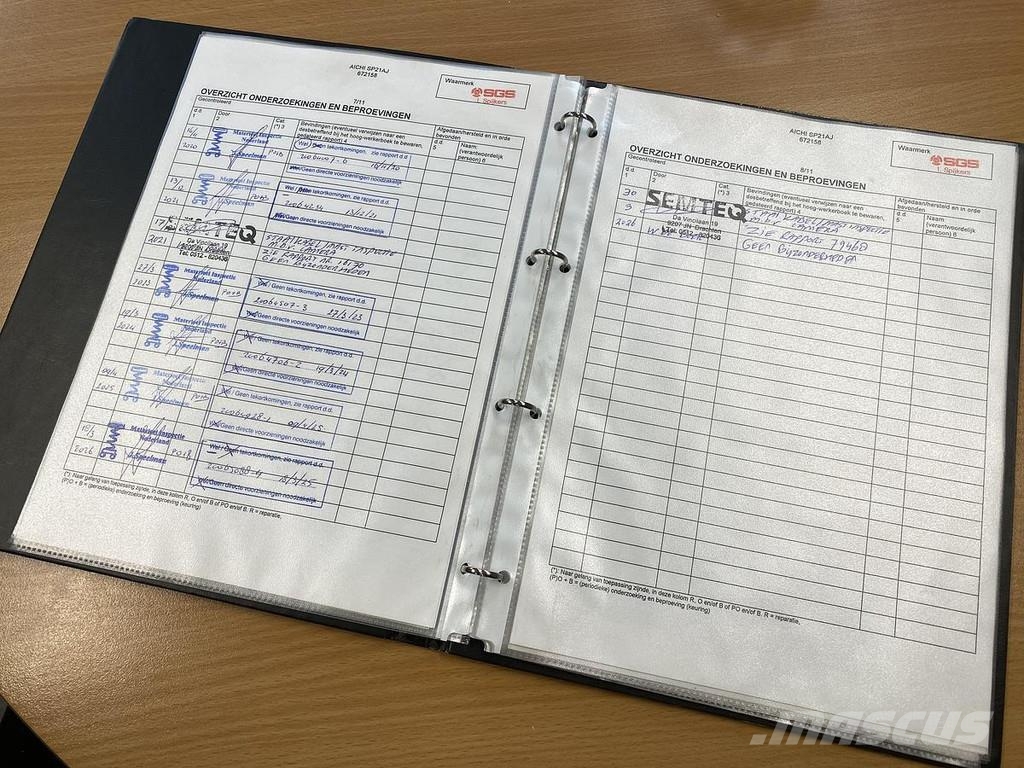 AICHI SP21AJ
672158
Waarmerk
SGS
I. Spijkers
7/11
OVERZICHT ONDERZOEKINGEN EN BEPROEVINGEN
Gecontroleerd
d.d. 1
Door 2
Cat. (*) 3
Bevindingen (eventueel verwijzen naar een desbetreffend bij het hoog-werkerboek te bewaren, gedateerd rapport) 4
Afgedaan/hersteld en in orde bevonden
d.d. 5
Naam. (verantwoordelijke persoon) 6
2020
Materieel Inspectie
Nederland
A Speelman
PO+B
Wel / Geen tekortkomingen, zie rapport d.d.
Wel/Geen directe voorzieningen noodzakelijk
2021
Materieel Inspectie
Nederland
A Speelman
PO+B
2021
SEMTEQ
Da Vincilaan 19
Tel. 0512 - 820436
ZIE RAPPORT NR.
GEEN BIJZONDERHEDEN
27/3
2023
Materieel Inspectie
Nederland
A Speelman
PO+B
Wel / Geen tekortkomingen, zie rapport d.d.
20064507-3 27/3/23
Wel/Geen directe voorzieningen noodzakelijk
19/3
2024
Materieel Inspectie
Nederland
A Speelman
PO+B
Wel / Geen tekortkomingen, zie rapport d.d.
20064706-2 19/3/24
Wel/Geen directe voorzieningen noodzakelijk
09/4
2025
Materieel Inspectie
Nederland
A Speelman
PO+B
Wel / Geen tekortkomingen, zie rapport d.d.
09/4/25
Wel/Geen directe voorzieningen noodzakelijk
2026
Materieel Inspectie
Nederland
A Speelman
PO+B
Wel / Geen tekortkomingen, zie rapport d.d.
Wel/Geen directe voorzieningen noodzakelijk
(*): Naar gelang van toepassing zijnde, in deze kolom R, O en/of B of PO en/of B. R = reparatie,
(P)O + B = (periodieke) onderzoeking en beproeving (keuring)
AICHI SP21AJ
672158
Waarmerk
SGS
I. Spijkers
8/11
OVERZICHT ONDERZOEKINGEN EN BEPROEVINGEN
Gecontroleerd
d.d. 1
Door 2
Cat. (*) 3
Bevindingen (eventueel verwijzen naar een desbetreffend bij het hoog-werkerboek te bewaren, gedateerd rapport) 4
Afgedaan/hersteld en in orde bevonden
d.d. 5
Naam (verantwoordelijke persoon) 6
30
3
2026
SEMTEQ
Da Vincilaan 19
9207 JN Drachten
Tel. 0512 - 820436
ZIE RAPPORT 79468
GEEN BIJZONDERHEDEN
(*): Naar gelang van toepassing zijnde, in deze kolom R, O en/of B of PO en/of B. R = reparatie,
(P)O + B = (periodieke) onderzoeking en beproeving (keuring)
.mascus